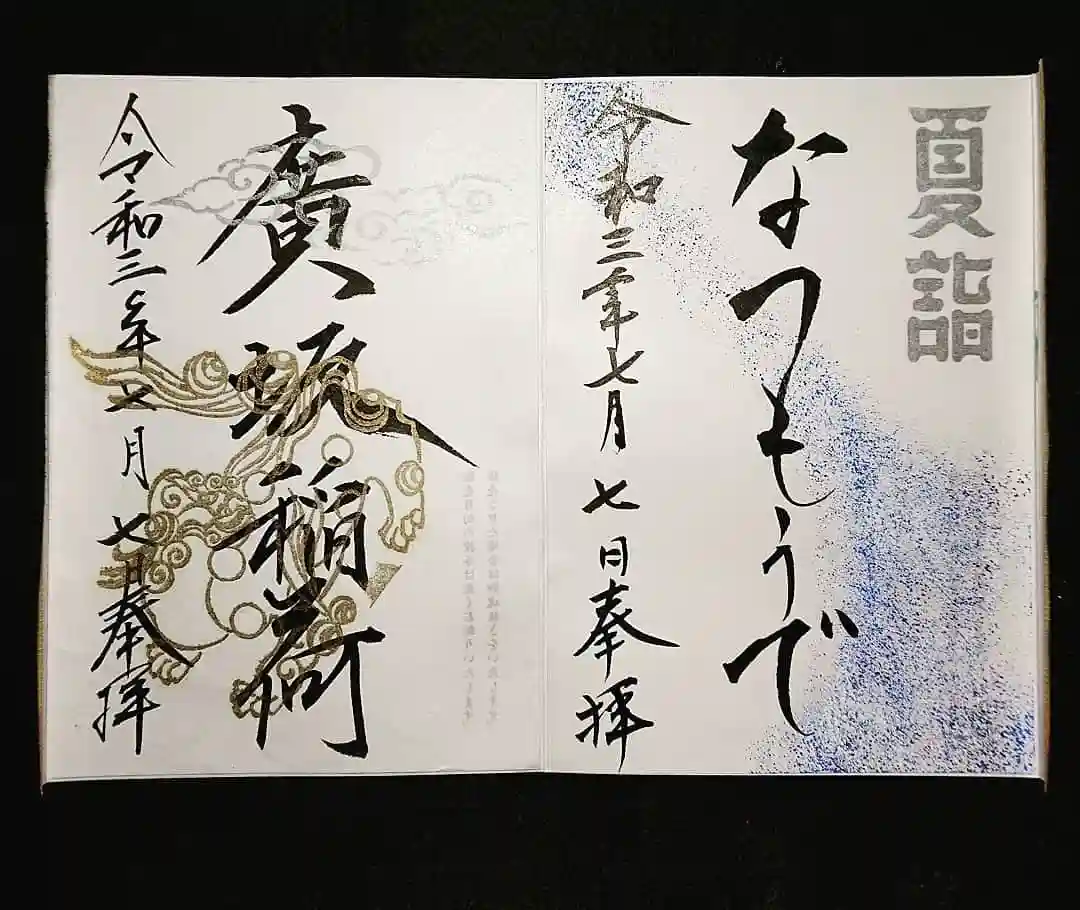 夏詣
なつもうで
令和三年七月七日奉拝
廣坂稲荷
令和三年七月七日奉拝